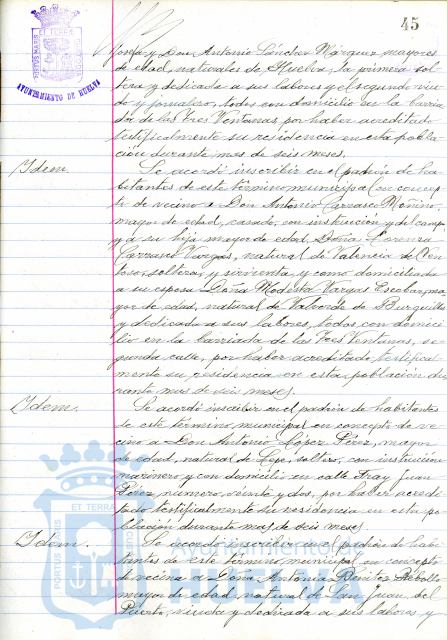 45
AYUNTAMIENTO DE HUELVA
y Don Antonio Sánchez Márquez, mayores
de edad, naturales de Huelva, la primera sol-
tera y dedicada a sus labores y el segundo viu-
do y jornalero, todos con domicilio en la barria-
da de las Tres Ventanas, por haber acreditado
testificalmente su residencia en esta pobla-
ción durante mas de seis meses.
Idem. Se acordó inscribir en el padrón de ha-
bitantes de este término municipal en concep-
to de vecino a Don Antonio Carrasco Moñino,
mayor de edad, casado, con instrucción y del campo
y a su hija mayor de edad Doña Lorenza
Carrasco Vargas, natural de Valencia del Ven-
toso, soltera, y sirvienta, y como domiciliada
a su esposa Doña Modesta Vargas Escobar, ma-
yor de edad, natural de Valverde de Burguillos
y dedicada a sus labores, todos con domici-
lio en la barriada de las Tres Ventanas, se-
gunda calle, por haber acreditado testifical-
mente su residencia en esta población du-
rante mas de seis meses.
Idem. Se acordó inscribir en el padrón de habitantes
de este término municipal en concepto de ve-
cino a Don Antonio López Pérez, mayor
de edad, natural de Lepe, soltero, con instrucción
marinero y con domicilio en calle Fray Juan
Pérez, numero, veinte y dos, por haber acredi-
tado testificalmente su residencia en esta po-
blación durante mas de seis meses.
Idem. Se acordó inscribir en el padrón de habi-
tantes de este término municipal en concepto
de vecina a Doña Antonia Benítez Rebollo
mayor de edad, natural de San Juan del
Puerto, viuda y dedicada a sus labores, y
Ayuntamiento de